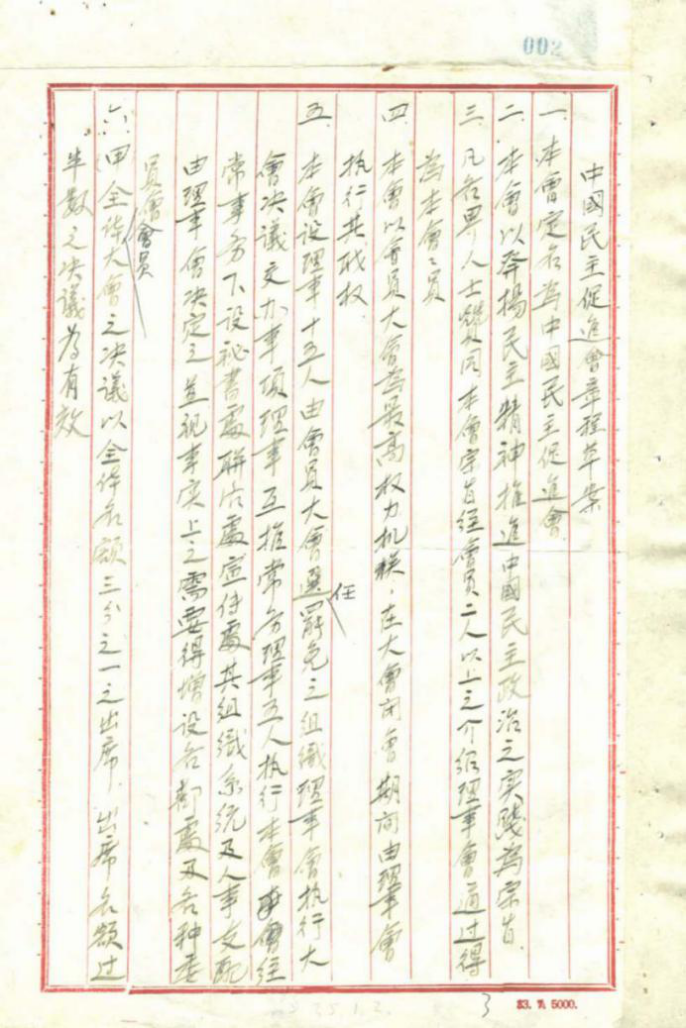 002
中國民主促進會章程草案
一.本會定名為中國民主促進會
二.本會以發揚民主精神推進中國民主政治之实踐為宗旨.
三.凡各界人士贊同本會宗旨經會員二人以上之介绍理事會通过得
為本會會員
四.本會以會員大會為最高权力机関.在大會闭會期间由理事會
执行其职权
五.本會設理事十五人由會員大會選任罷免之组織理事會执行大
會决議交办事項理事互推常务理事五人执行本會經
常事务下設祕書處聯洛處宣传處其组織系统及人事支配
由理事會决定之並視事实上之需要得增設各部處及各种委
員會
六.會員全体大會之决議以全体名額三分之一之出席.出席名額过
半數之决議為有效
3